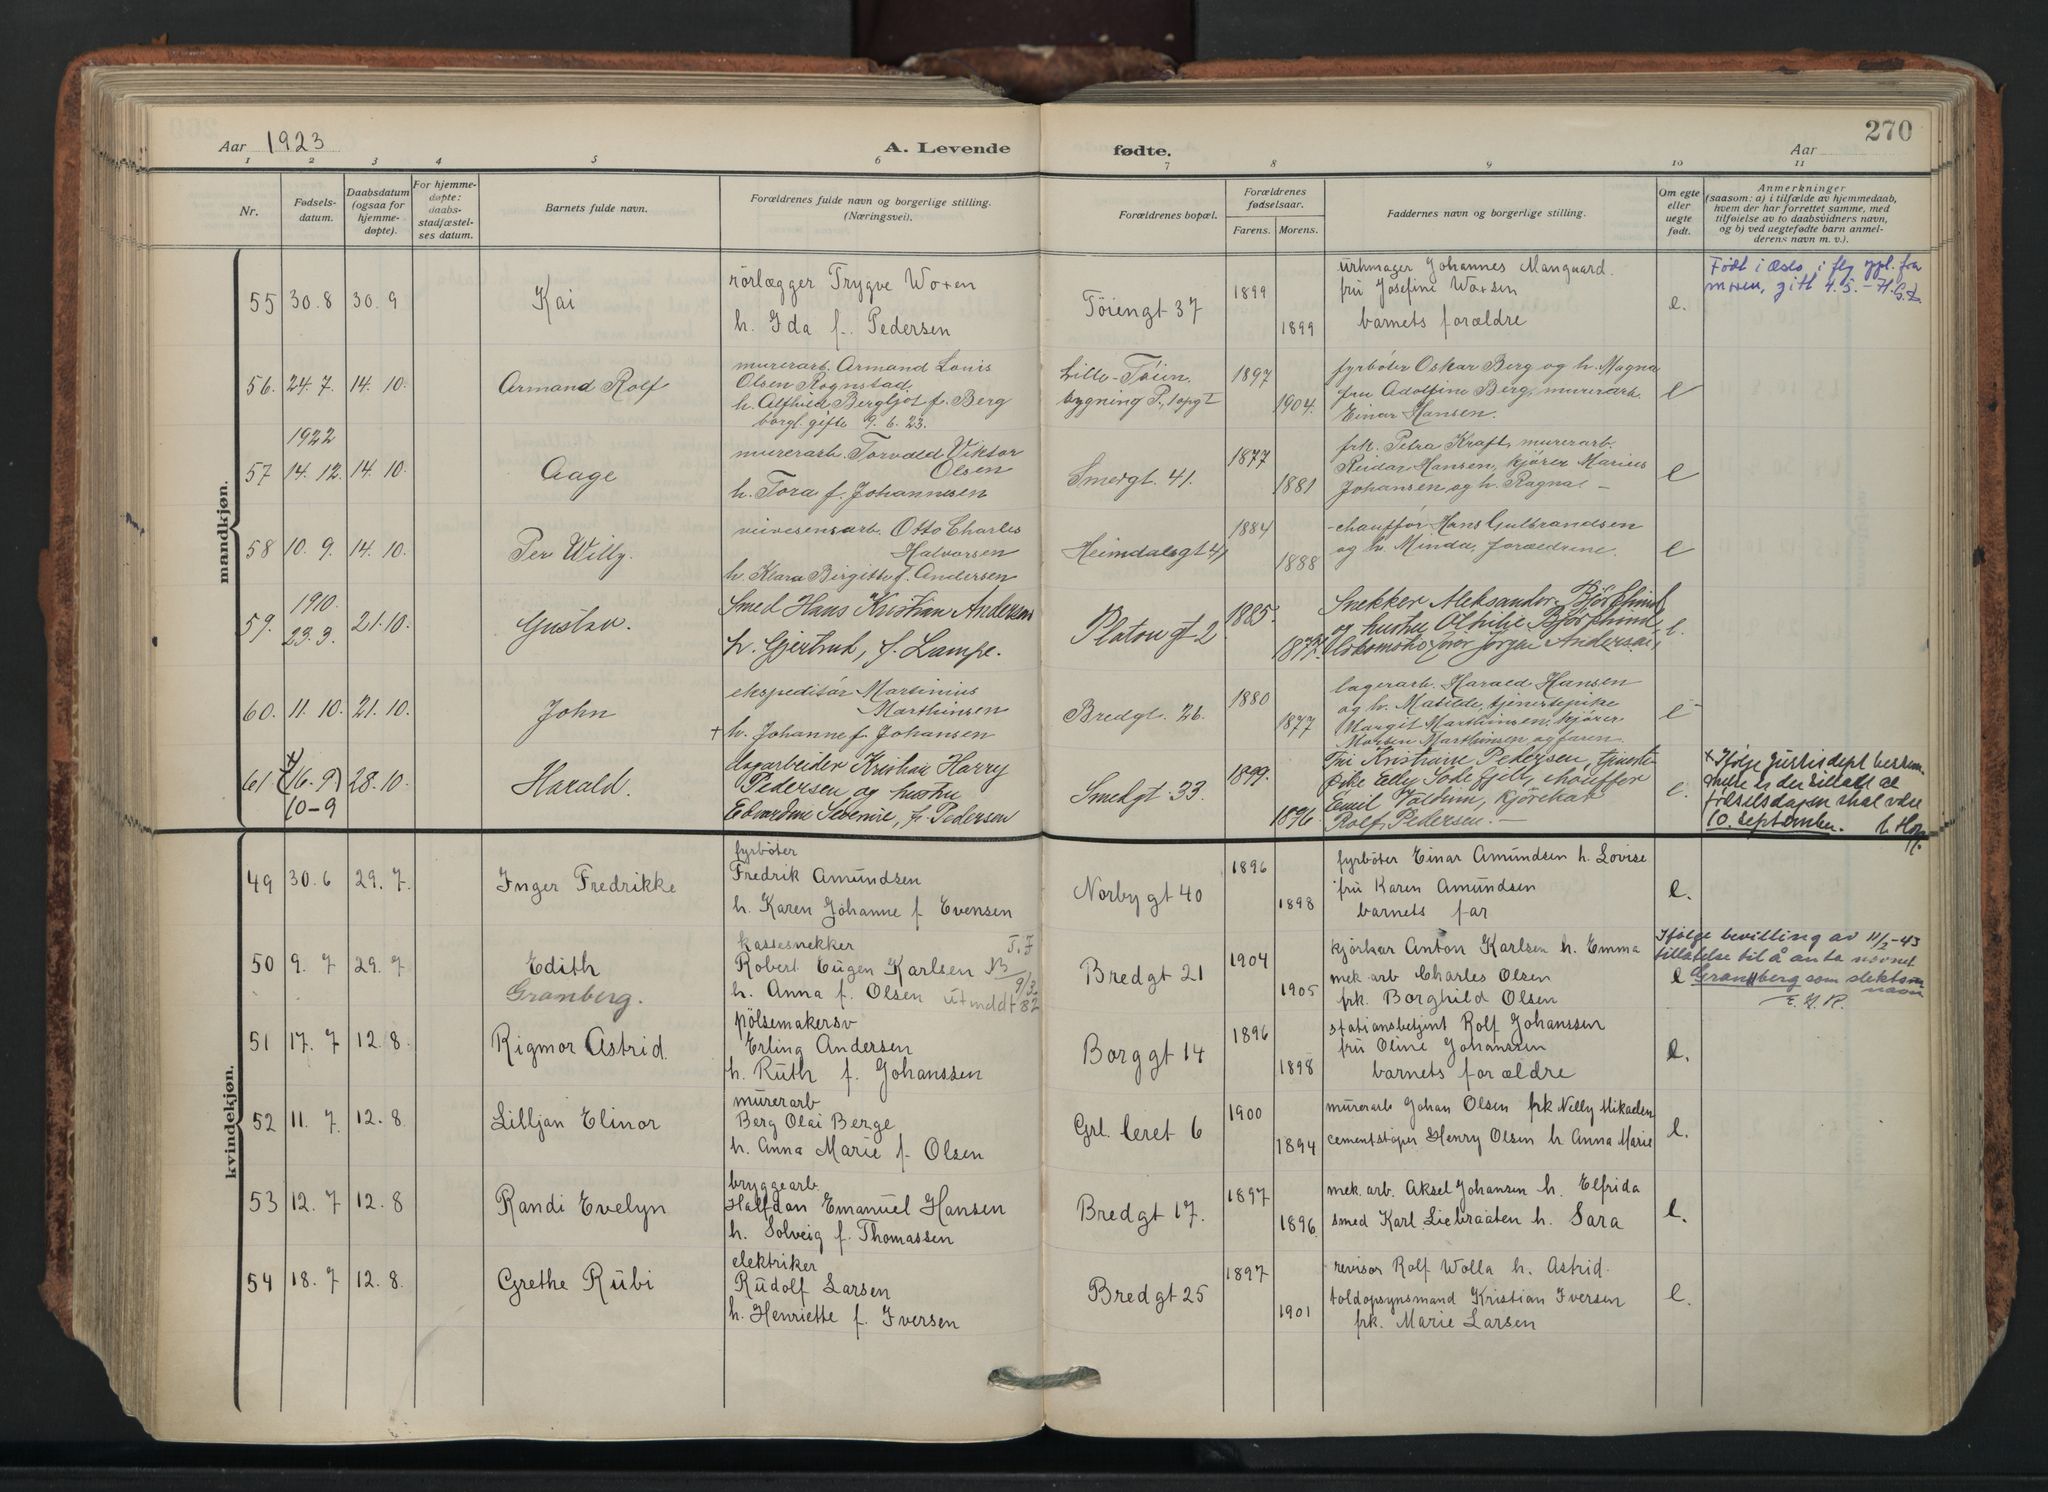 Aar 1923
A. Levende fødte.
270
Aar
1 2 3 4 5 6 7 8 9 10 11
Nr.
Fødsels-
datum.
Daabsdatum
(ogsaa for
hjemme-
døpte).
For hjemme-
døpte:
daabs-
stadfæstel-
ses datum.
Barnets fulde navn.
Forældrenes fulde navn og borgerlige stilling.
(Næringsvei).
Forældrenes bopæl.
Forældrenes
fødselsaar.
Farens. Morens.
Faddernes navn og borgerlige stilling.
Om egte
eller
uegte
født.
Anmerkninger
(saasom: a) i tilfælde av hjemmedaab,
hvem der har forrettet samme, med
tilføielse av to daabsvidners navn,
og b) ved uegtefødte barn anmel-
derens navn m. v.).
mandkjøn.
55 30.8 30.9 Kai
rörlægger Trygve Woxen
h. Ida f. Pedersen
Töiengt 37
1899
1899
urhmager Johannes Manguard.
fru Josefine Woxsen
barnets forældre
e.
Født i Oslo, i flg
moren, gitt 4.5.-
56. 24.7. 14.10. Armand Rolf
murerarb. Armand Louis
Olsen Rognstad
h. Alfhild Bergljot f. Berg
borgl. gifte 9.6.23.
Lille-Töien
bygning P., 1 opg I
1897
1904.
fyrböter Oskar Berg og h. Magna
fru Adolfine Berg, murerarb.
Einar Hansen.
e
1922
57 14.12. 14.10. Aage
murerarb. Torvald Viktor
Olsen
h. Tora f. Johannesen
Smedgt. 41.
1877
1881
frk. Petra Kraft, murerarb.
Reidar Hansen, kjörer Marius
Johansen og h. Ragna -
e
58 10.9. 14.10. Per Willy.
veivesensarb. Otto Charles
Halvorsen
h. Klara Birgitte f. Andersen
Heimdalsgt 41
1884
1888
chaufför Hans Gulbrandsen
og h. Minda, forældrene.
e
1910.
59. 23.3. 21.10. Gustav.
Smed Hans Kristian Andersen
h. Gjertrud, f. Lampe.
Platou gt 2
1885.
Snekker Aleksander Björklund
og hustru Othilie Björklund,
Jörgen Andersen,
e.
60. 11.10. 21.10. John
ekspeditör Martinius
Marthinsen
+ h. Johanne f. Johansen
Bredgt. 26.
1880
1877
lagerarb. Harald Hansen
og h. Matilde, tjenestepike
Margit Marthinsen, kjörer
Marthinsen og faren.
e
+
61 (16-9) 28.10. Harald.
10-9
dagarbeider Kristian Harry
Pedersen og hustru
Edvardine Severine, f. Pedersen
Smedgt. 33.
1899.
1896.
Fru Kristiane Pedersen, tjeneste-
pike Elly chauffør
Emil Valdem, kjörekar
Rolf Pedersen. -
e.
+ Ifölge Justisdept bestem-
melse er det tillatt at
fødselsdagen skal være
10. september.
kvindekjøn.
49 30.6 29.7. Inger Fredrikke
fyrböter
Fredrik Amundsen
h. Karen Johanne f Evensen
Norbygt 40
1896
1898
fyrböter Einar Amundsen h. Lovise
fru Karen Amundsen
barnets far
e.
50 9.7 29.7 Edith
Granberg.
kassesnekker
Robert Eugen Karlsen
h. Anna f. Olsen
T.F
NB
utmeldt 9/3 82
Bredgt 21
1904
1905
kjörkar Anton Karlsen h. Emma
mek arb Charles Olsen
frk. Borghild Olsen
e
Ifölge bevilling av 11/2-43
tillatelse til å anta navnet
Granberg som slekts-
navn
51 17.7 12.8. Rigmor Astrid.
pölsemakersv
Erling Andersen
h. Ruth f. Johanssen
Borggt 14
1896
1898
stationsbetjent Rolf Johanssen
fru Oline Johanssen
barnets forældre
e.
52 11.7. 12.8 Lilljan Elinor
murerarb
Berg Olai Berge
h. Anna Marie f. Olsen
Grl. leret 6
1900
1894
murerarb Johan Olsen frk Nelly Mikaelen
cementstöper Henry Olsen h Anna Marie
e.
53 12.7 12.8 Randi Evelyn
bryggearb.
Halfdan Emanuel Hansen
h. Solveig f. Thomassen
Bredgt 17.
1897
1896
mek. arb. Aksel Johansen h. Elfrida
smed Karl Liebraaten h. Sara
e.
54 18.7 12.8. Grethe Rubi
elektriker
Rudolf Larsen
h. Henriette f. Iversen
Bredgt 25
1897
1901
revisor Rolf Wolla h. Astrid.
toldopsynsmand Kristian Iversen
frk. Marie Larsen
e.